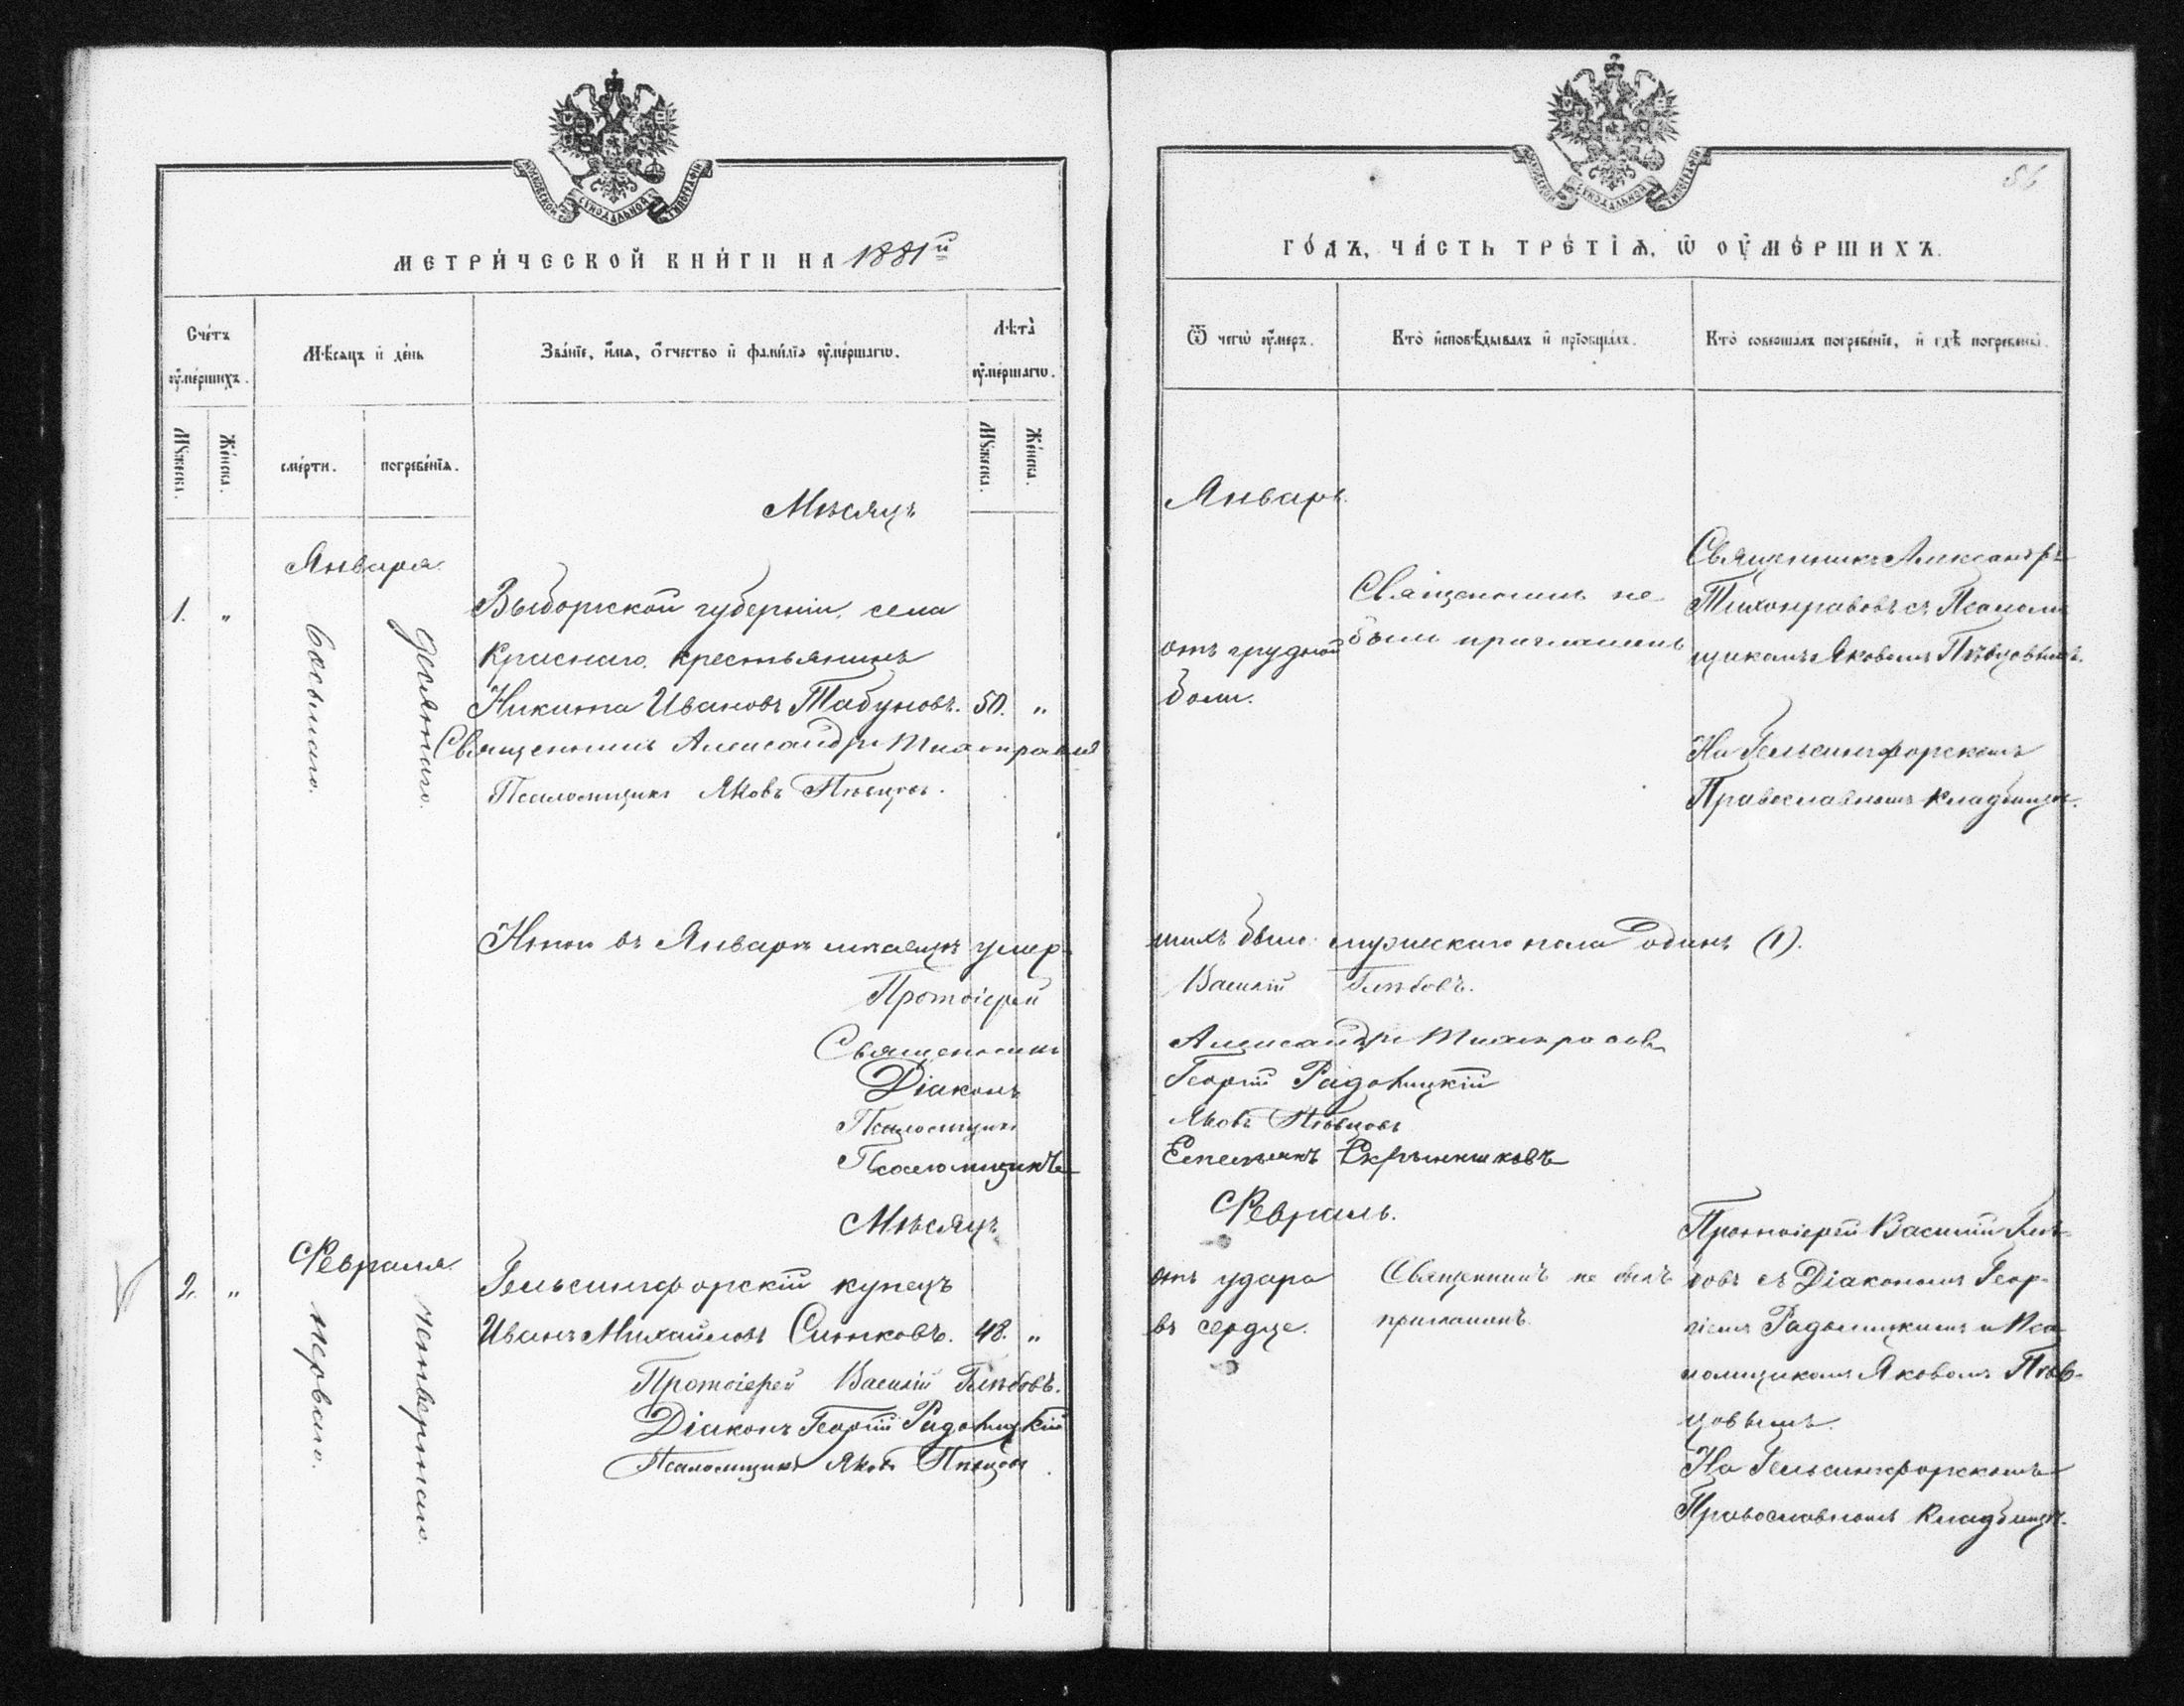 МОСКОВСКОЙ СѴНОДАЛЬНОЙ ТИПОГРАФІИ
МЕТРИ́ЧЕСКОЙ КНИ́ГИ НА 1881й
Сче́тъ оу҆ме́ршихъ.
Мѣ́сяцъ и҆ де́нь
Зва́нїе, и҆́мѧ, ѻ҆́тчество и҆ фами́лїа оу҆ме́ршагѡ.
Лѣ́та̀ оу҆ме́ршагѡ.
Мꙋ́жеска.
Же́нска.
сме́рти.
погребе́нїѧ.
Мꙋ́жеска.
Же́нска.
Мѣсяцъ
Января.
1. "
Восьмаго.
Десятаго.
Выборгской губерніи, села
Краснаго, крестьянинъ
Никита Ивановъ Табуновъ. 50. "
Священникъ Александръ Тихонравовъ
Псаломщикъ Яковъ Пѣвцовъ.
Итого въ Январѣ мѣсяцѣ умер-
Протоіерей
Священникъ
Діаконъ
Псаломщикъ
Псаломщикъ
Мѣсяцъ
Февраля.
2. "
Перваго.
Четвертаго.
Гельсингфорскій купецъ
Иванъ Михайловъ Синковъ. 48. "
Протоіерей Василій Глѣбовъ.
Діаконъ Георгій Радовицкій
Псаломщикъ Яковъ Пѣвцовъ
МОСКОВСКОЙ СѴНОДАЛЬНОЙ ТИПОГРАФІИ
56
ГО́ДЪ, ЧА́СТЬ ТРЕ́ТІѦ, Ѡ ОУ҆МЕ́РШИХЪ.
Ѿ чегѡ̀ оу҆́меръ.
Кто̀ и҆сповѣ́дывалъ и҆ прїобща́лъ.
Кто̀ соверша́лъ погребе́нїе, и҆ гдѣ̀ погребены̀.
Январь.
отъ грудной
боли.
Священникъ не
былъ приглашенъ
Священникъ Александръ
Тихонравовъ съ Псалом-
щикомъ Яковомъ Пѣвцовымъ.
На Гельсингфорскомъ
Православномъ кладбищѣ.
шихъ было: мужескаго пола одинъ (1).
Василій Глѣбовъ.
Александръ Тихонравовъ
Георгій Радовицкій
Яковъ Пѣвцовъ
Емельянъ Скрынниковъ
Февраль.
отъ удара
въ сердце.
Священникъ не былъ
приглашенъ.
Протоіерей Василій Глѣ-
бовъ съ Діакономъ Геор-
гіемъ Радовицкимъ и Пса-
ломщикомъ Яковомъ Пѣв-
цовымъ.
На Гельсингфорскомъ
Православномъ Кладбищѣ.